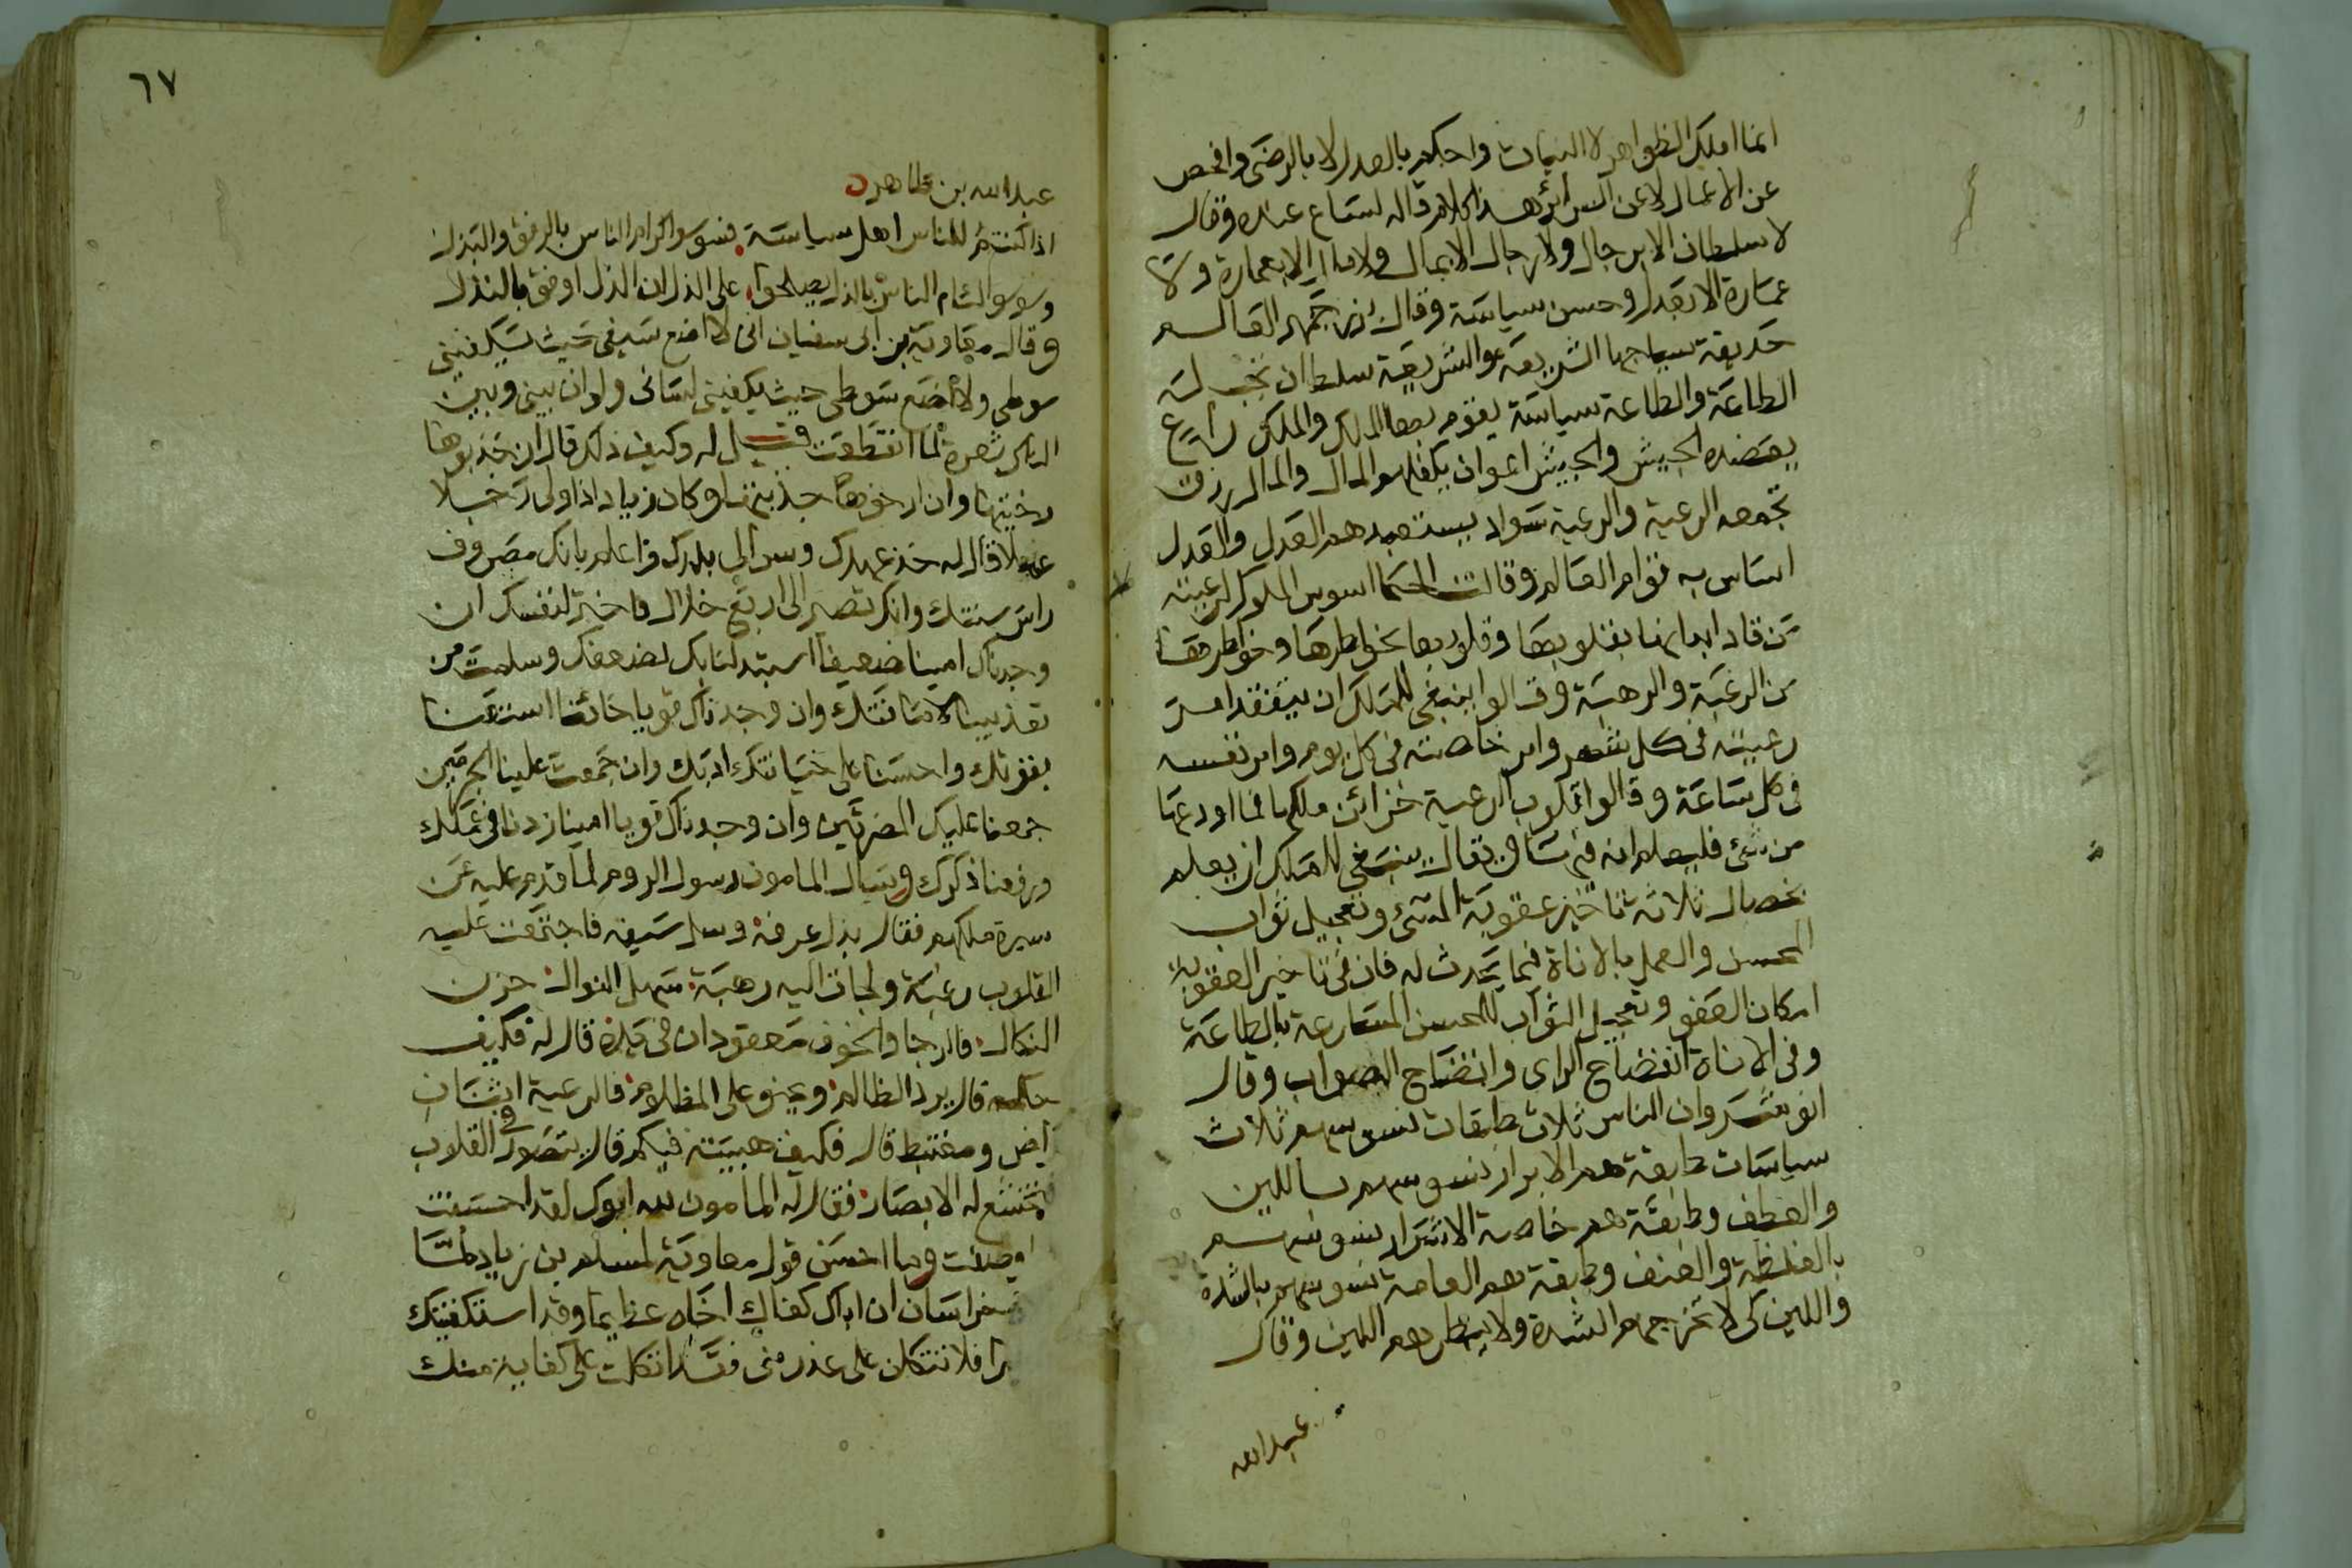 انما املك الظواهر لا النيات واحكم بالعدل لا بالرضى وافحص
عن الاعمال لا عن السرائر هذا كلام قاله لسماع عنده وقال
لا سلطان الا برجال ولا رجال الا بمال ولا مال الا بعمارة ولا
عمارة الا بعدل وحسن سياسة وقال بزرجمهر العالم
حديقة سياجها الشريعة والشريعة سلطان تجب له
الطاعة والطاعة سياسة يقوم بها الملك والملك راع
يعضده الجيش والجيش اعوان يكفلهم المال والمال رزق
تجمعه الرعية والرعية سواد يستعبدهم العدل والعدل
اساس به قوام العالم وقالت الحكما اسوس الملوك لرعيته
من قاد ابدانها بقلوبها وقلوبها بخواطرها وخواطرها
من الرغبة والرهبة وقالوا ينبغى للملك ان يتفقد امر
رعيته فى كل شهر وامر خاصته فى كل يوم وامر نفسه
فى كل ساعة وقالوا قلوب الرعية خزائن ملكها فما اودعها
من شئ فليعلم انه فيها ويقال ينبغى للملك ان يعمل
بخصال ثلاثة تاخير عقوبة المسئ وتعجيل ثواب
المحسن والعمل بالاناة فيما يحدث له فان فى تاخير العقوبة
امكان العفو وتعجيل الثواب للمحسن المسارعة بالطاعة
وفى الاناة انفضاح الراى وانضاح الصواب وقال
انوشروان الناس ثلاث طبقات نسوسهم ثلاث
سياسات طبقة هم الابرار نسوسهم باللين
والعطف وطبقة هم خاصة الاشرار نسوسهم
بالغلظة والعنف وطبقة هم العامة نسوسهم بالشدة
واللين كى لا تحرجهم الشدة ولا يبطرهم اللين وقال
عبد الله
٦٧
عبد الله بن طاهر
اذا كنتم للناس اهل سياسة فسوسوا كرام الناس بالرفق والبذل
وسوسوا لئام الناس بالذل يصلحوا على الذل ان الذل اوفق بالنذل
وقال معاوية بن ابى سفيان انى لا اضع سيفى حيث يكفينى
سوطى ولا اضع سوطى حيث يكفينى لسانى ولو ان بينى وبين
الناس شعرة لما انقطعت قيل له وكيف ذلك قال ان جذبوها
رخيتها وان ارخوها جذبتها وكان زياد اذا ولى رجلا
عملا قال له خذ عهدك وسر الى بلدك واعلم بانك مصروف
راس سنتك وانك تصير الى اربع خلال فاختر لنفسك ان
وجدناك امينا ضعيفا استبدلنا بك لضعفك وسلمت من
تعذيبنا لامانتك وان وجدناك قويا خائنا استهنا
بقوتك واحسنا على خيانتك ادبك وان جمعت علينا الجرمين
جمعنا عليك المضرتين وان وجدناك قويا امينا زدنا فى عملك
ورفعنا ذكرك وسال المامون رسول الروم لما قدم عليه عن
سيرة ملكهم فقال بذل عرفه وسل سيفه فاجتمعت عليه
القلوب رغبة ولجات اليه رهبة سهل النوال حزن
النكال فالرجا والخوف معقودان فى يده قال له فكيف
حكمه قال يرد الظالم ويحنو على المظلوم فالرعية اثنان
راض ومغتبط قال فكيف هيبته فيكم قال يتصور فى القلوب
تخشع له الابصار فقال له المامون لله ابوك لقد احسنت
وصفت وما احسن قول معاوية لمسلم بن زياد لما
خراسان ان اباك كفا اخاه عظيما وقد استكفيتك
فلا تتكلن على عذر منى فقد اتكلت على كفاية منك